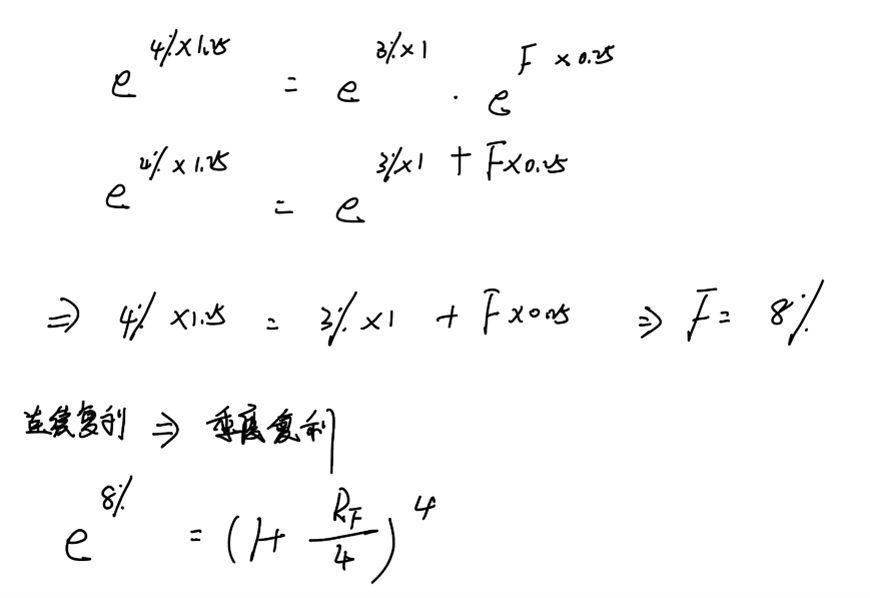 e^{4% × 1.25} = e^{3% × 1} · e^{F × 0.25}
e^{4% × 1.25} = e^{3% × 1 + F × 0.25}
⇒ 4% × 1.25 = 3% × 1 + F × 0.25 ⇒ F = 8%
连续复利 ⇒ 季度复利
e^{8%} = (1 + R_F/4)^4